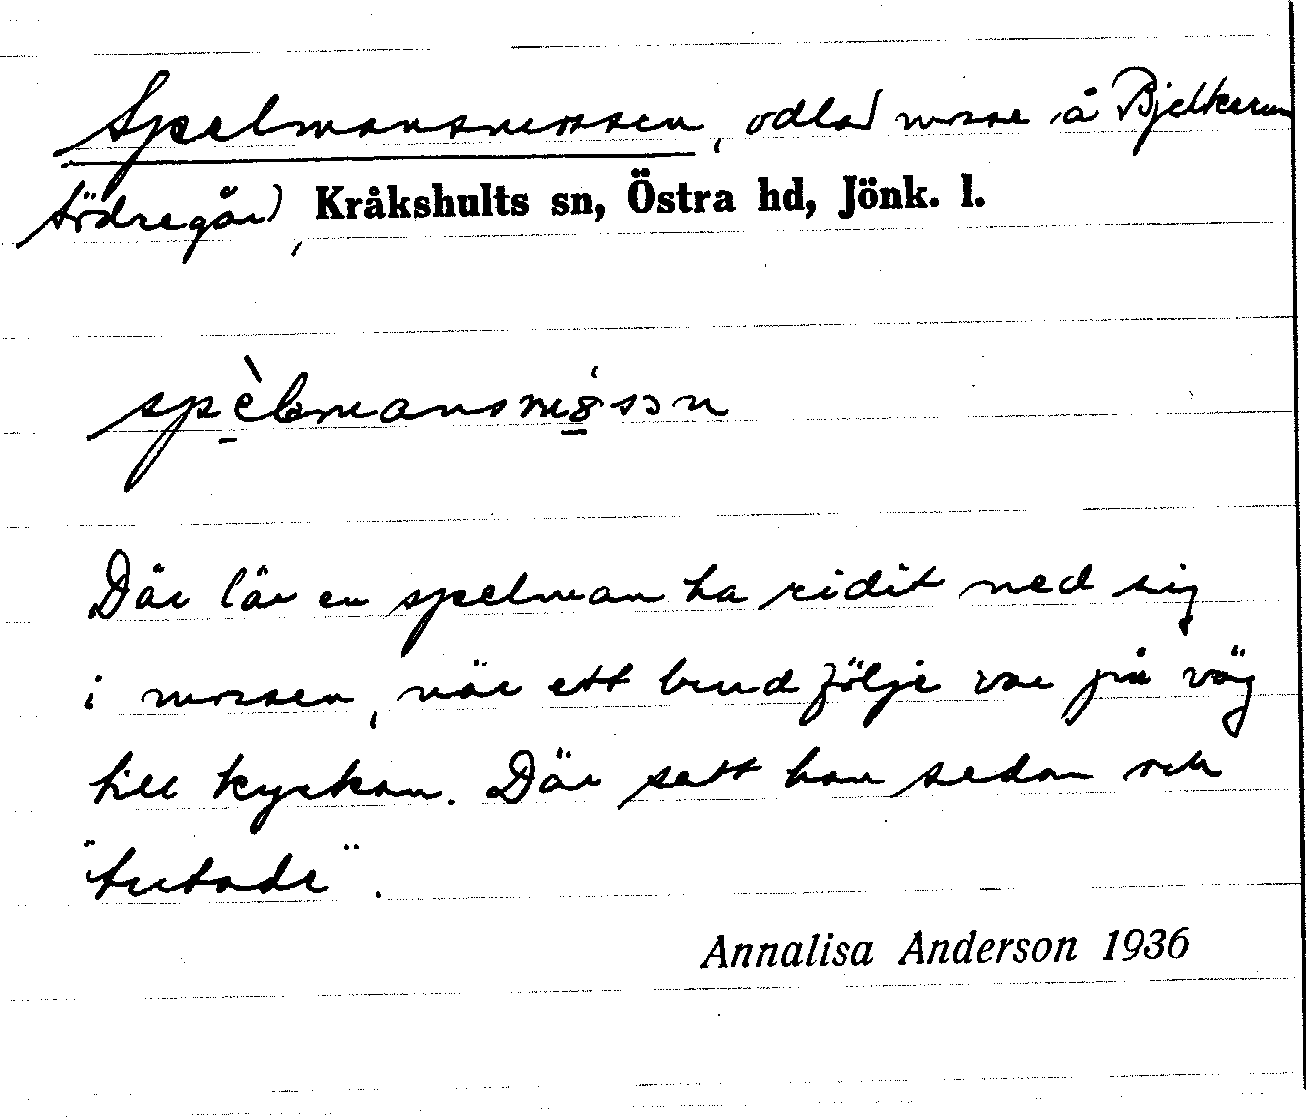 Spelmansmossen, odlad mosse å Bjelkerum
Södregård, Kråkshults sn, Östra hd, Jönk. l.
spèlmansmósson
Där lär en spelman ha ridit ned sig
i mossen, när ett brudfölje var på väg
till kyrkan. Där satt han sedan och
"tutade".
Annalisa Anderson 1936